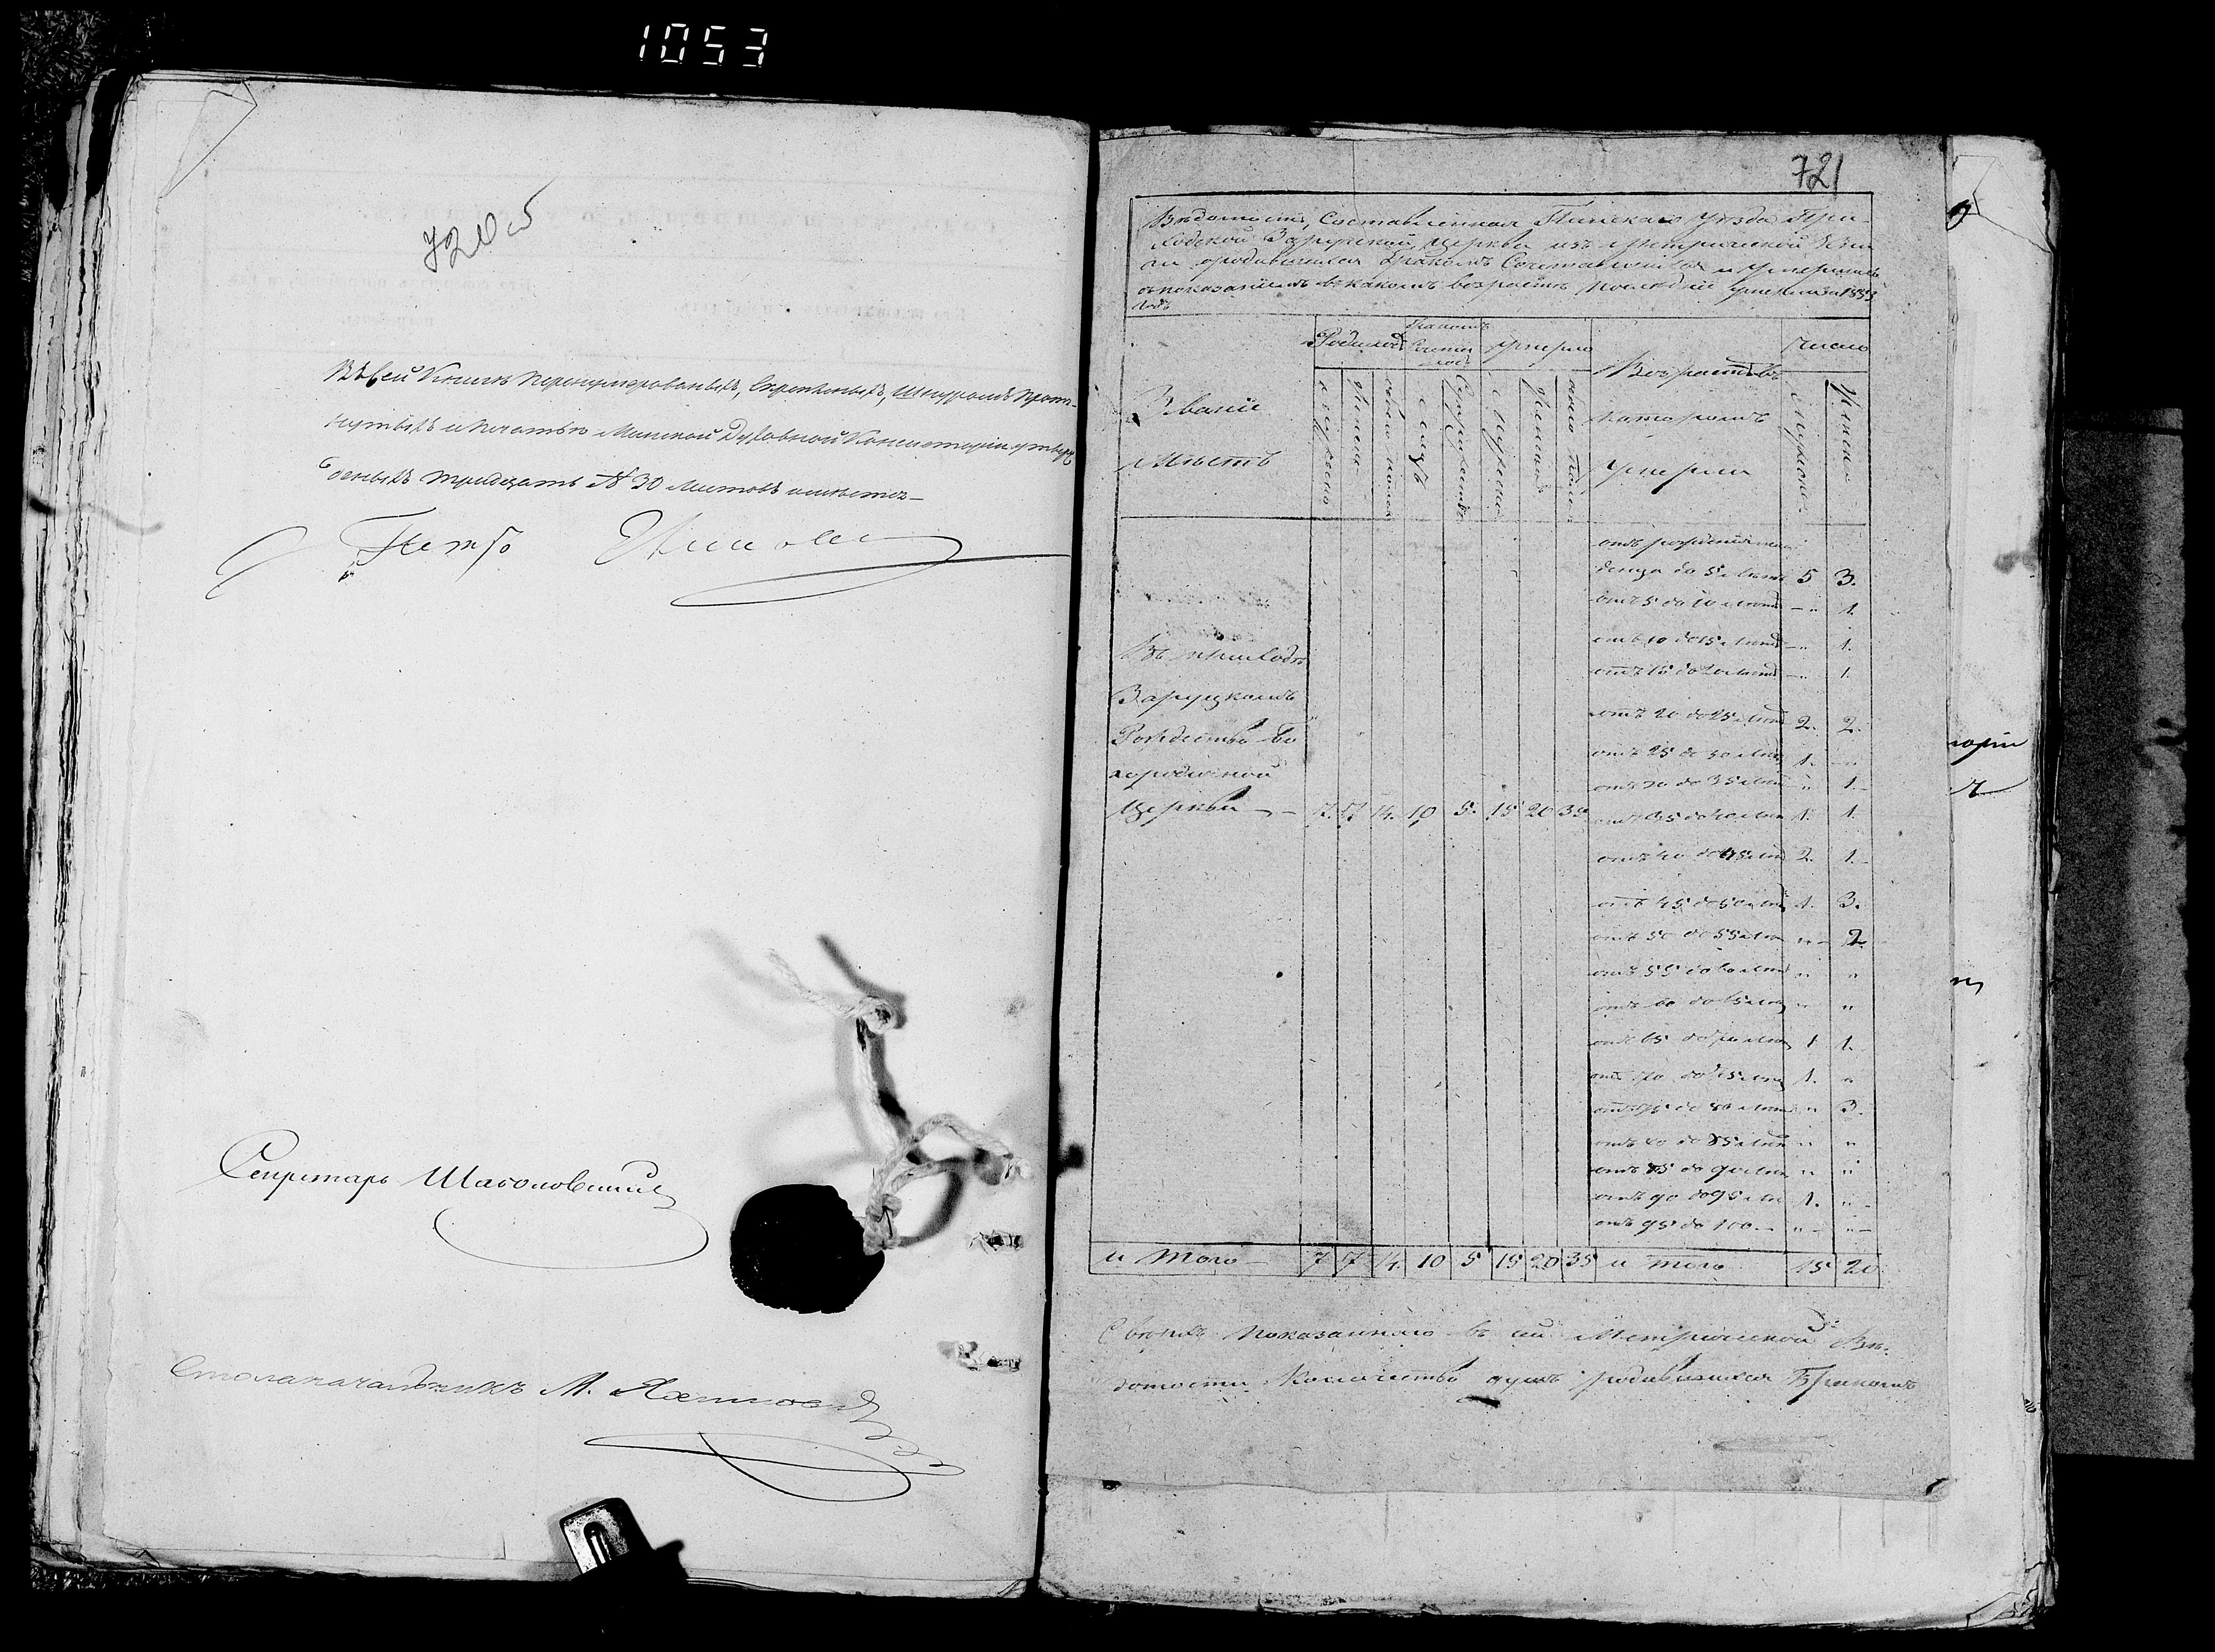 1053
720 об
Въ сей Книгѣ перенумерованыхъ, скрѣпленыхъ, шнуромъ прот-
нутыхъ и печатью Минской Духовной Консисторіи утверж
деныхъ тридцать № 30 листовъ имѣется
Петръ
Секретарь
Столоначальникъ М.
721
Вѣдомость, Составленная Пинскаго уѣзда При-
ходской Заруцкой Церкви изъ Метрической Кни
ги о родившихся бракомъ Сочетавшихся и умершихъ
съ показаніемъ въ какомъ возрастѣ послѣдніе умерли за 1853
годъ
Званіе
Мѣстъ
Родилось
Бракомъ
Сочета
лось
умерло
Возрастъ въ
которомъ
умерли
Число
мужеска
женска
обоего пола
мужеска
женска
обоего пола
мужеска
женска
отъ рожденія мла
денца до 5 лѣтъ 5 3.
отъ 5 до 10 лѣтъ – „ 1.
отъ 10 до 15 лѣтъ – „ 1.
отъ 15 до 20 лѣтъ – „ 1.
отъ 20 до 25 лѣтъ 2. 2.
отъ 25 до 30 лѣтъ 1. – „
отъ 30 до 35 лѣтъ „ 1.
отъ 35 до 40 лѣтъ 1. 1.
отъ 40 до 45 лѣтъ 2. 1.
отъ 45 до 50 лѣтъ 1. 3.
отъ 50 до 55 лѣтъ „ 2.
отъ 55 до 60 лѣтъ „ „
отъ 60 до 65 лѣтъ „ „
отъ 65 до 70 лѣтъ 1 1.
отъ 70 до 75 лѣтъ 1. „
отъ 75 до 80 лѣтъ „ 3.
отъ 80 до 85 лѣтъ „ „
отъ 85 до 90 лѣтъ „ „
отъ 90 до 95 лѣ 1. „
отъ 95 до 100 – „ „
Въ приходѣ
Заруцкомъ
Рождество-Бо
городичной
Церкви – 7. 7. 14. 10 5. 15 20 35
и того – 7 7 14. 10 5 15 20 35 и того 15 20
Сверхъ показаннаго въ сей Метрической Вѣ-
домости Количество душъ родившихся Бракомъ